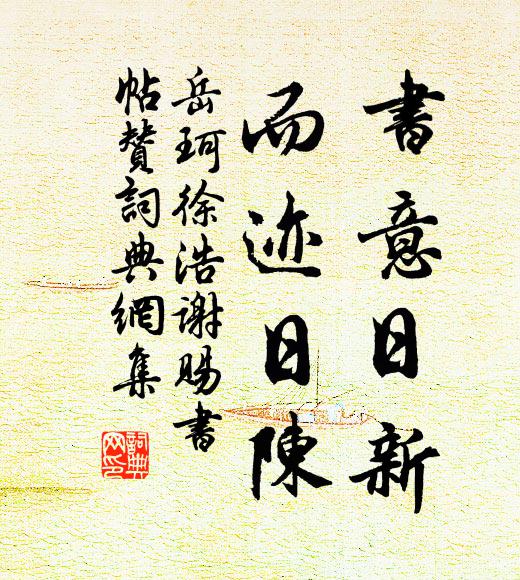 書意日新
而迹日陳
岳珂徐浩謝賜書
帖贊詞典網集
詞典
网印